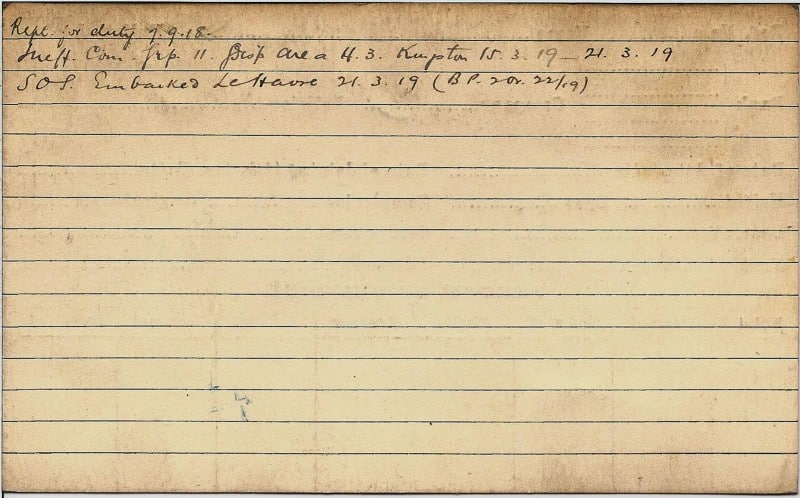 Rept. for duty 7.9.18.
Ineff. Com. Grp. 11. Disp Area H.3. Kingston 15.3.19 — 21.3.19
SOS. Embarked Le Havre 21.3.19 (B.P. 2 Or. 22/19)